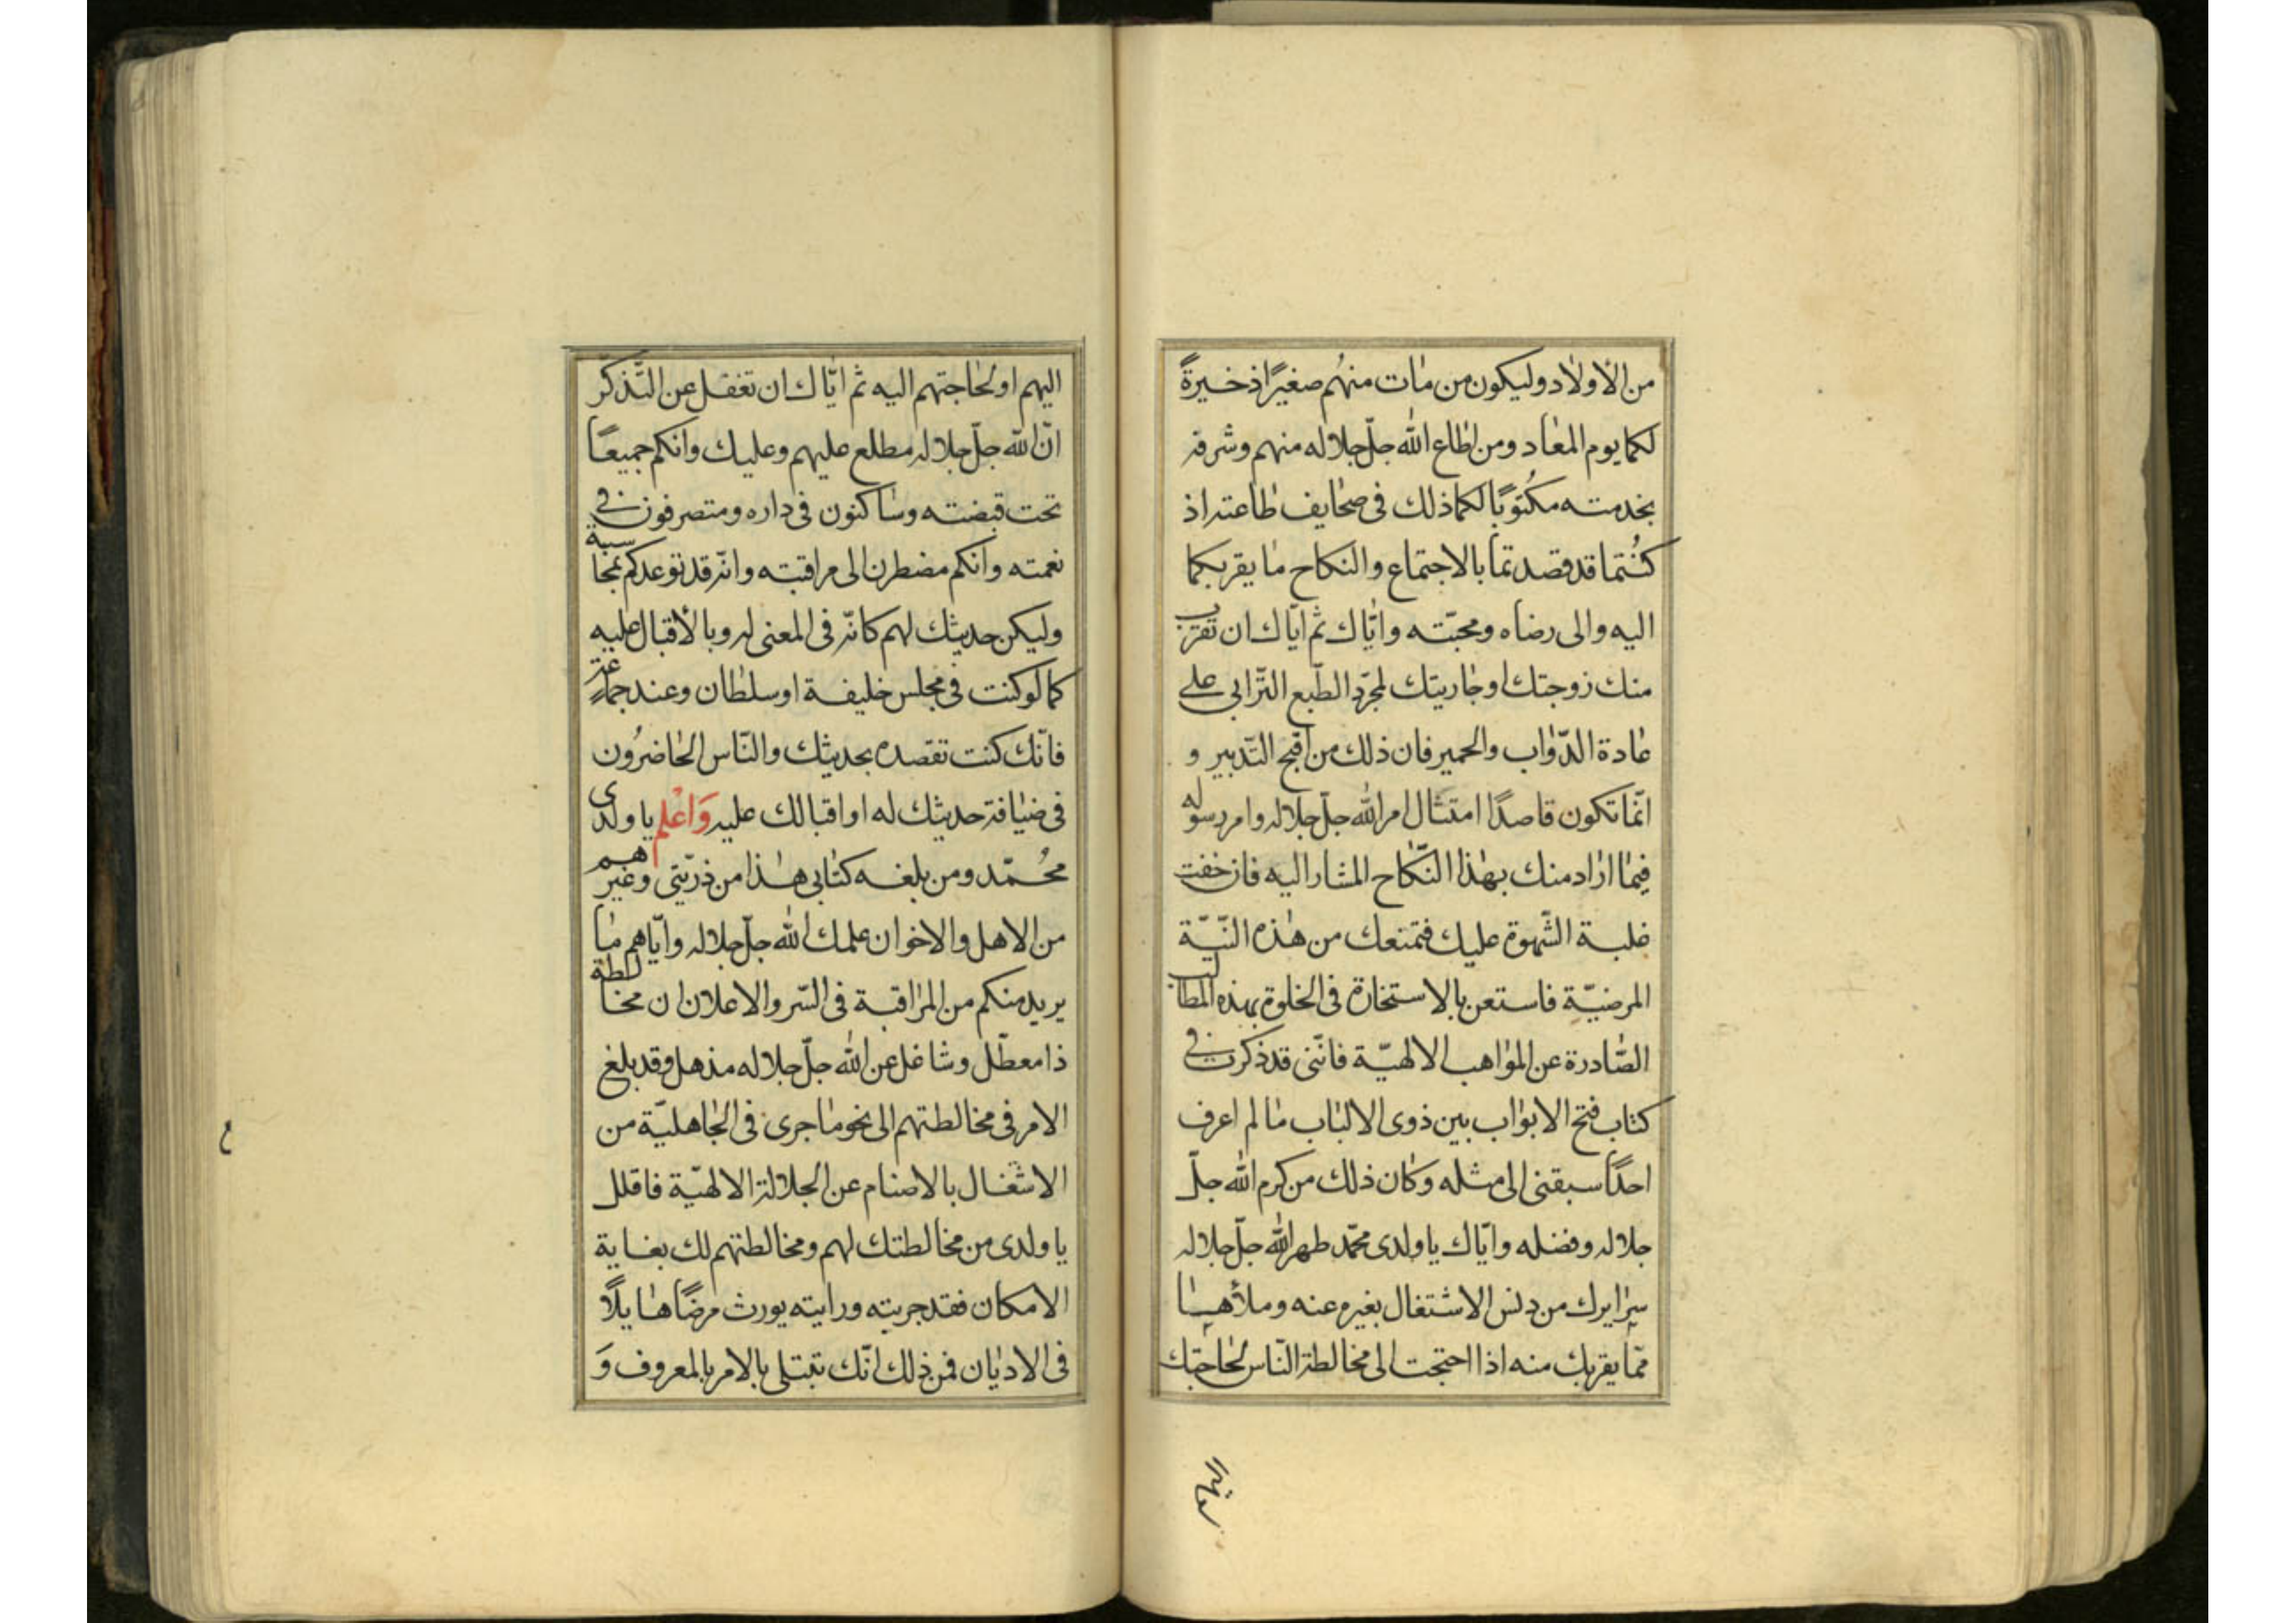 من الأولاد وليكون من مات منهم صغيرًا ذخيرةً
لكما يوم المعاد ومن اطاع الله جلّ جلاله منهم وشرفه
بخدمته مكتوبًا لكما ذلك فى صحايف طاعته اذ
كُنتما قد قصدتما بالاجتماع والنكاح ما يقربكما
اليه والى رضاه ومحبّته وايّاك ثم ايّاك ان تقرب
منك زوجتك او جاريتك لمجرّد الطّبع التّرابى على
عادة الدّواب والحمير فان ذلك من اقبح التّدبير و
انّما تكون قاصدًا امتثال امر الله جلّ جلاله وامر رسوله
فيما اراد منك بهذا النّكاح المشار اليه فان خفت
غلبة الشّهوة عليك فتمنعك من هذه النّيّة
المرضيّة فاستعن بالاستخارة فى الخلوة بهذه المطالب
الصّادرة عن المواهب الالهيّة فانّنى قد ذكرت فى
كتاب فتح الابواب بين ذوى الالباب ما لم اعرف
احدًا سبقنى الى مثله وكان ذلك من كرم الله جلّ
جلاله وفضله وايّاك يا ولدى محمّد طهر الله جلّ جلاله
سرايرك من دنس الاشتغال بغيره عنه وملأها
ممّا يقربك منه اذا احتجت الى مخالطة النّاس لحاجتك
اليهم او لحاجتهم اليه ثم ايّاك ان تغفل عن التّذكّر
انّ الله جلّ جلاله مطلع عليهم وعليك وانكم جميعًا
تحت قبضته وساكنون فى داره ومتصرفون فى
نعمته وانكم مضطرن الى مراقبته وانّه قد توعدكم بمحاسبة
وليكن حديثك لهم كانّه فى المعنى له وبالأقبال عليه
كما لو كنت فى مجلس خليفة او سلطان وعند جماعة
فانّك كنت تقصده بحديثك والنّاس الحاضرُون
فى ضيافة حديثك له او اقبالك عليه وَاعْلم يا ولدى
محُمّد ومن بلغه كتابى هذا من ذرّيّتى وغيرهم
من الاهل والاخوان علمك الله جلّ جلاله وايّاهم ما
يريد منكم من المراقبة فى السّر والاعلان ان مخالطة
ذا معطّل وشاغل عن الله جلّ جلاله مذهل وقد بلغ
الامر فى مخالطتهم الى نحو ما جرى فى الجاهليّة من
الاشغال بالاصنام عن الجلالة الالهيّة فاقلل
يا ولدى من مخالطتك لهم ومخالطتهم لك بغاية
الامكان فقد جربته ورايته يورث مرضًا هايلًا
فى الاديان فمن ذلك انّك تبتلى بالامر بالمعروف وَ